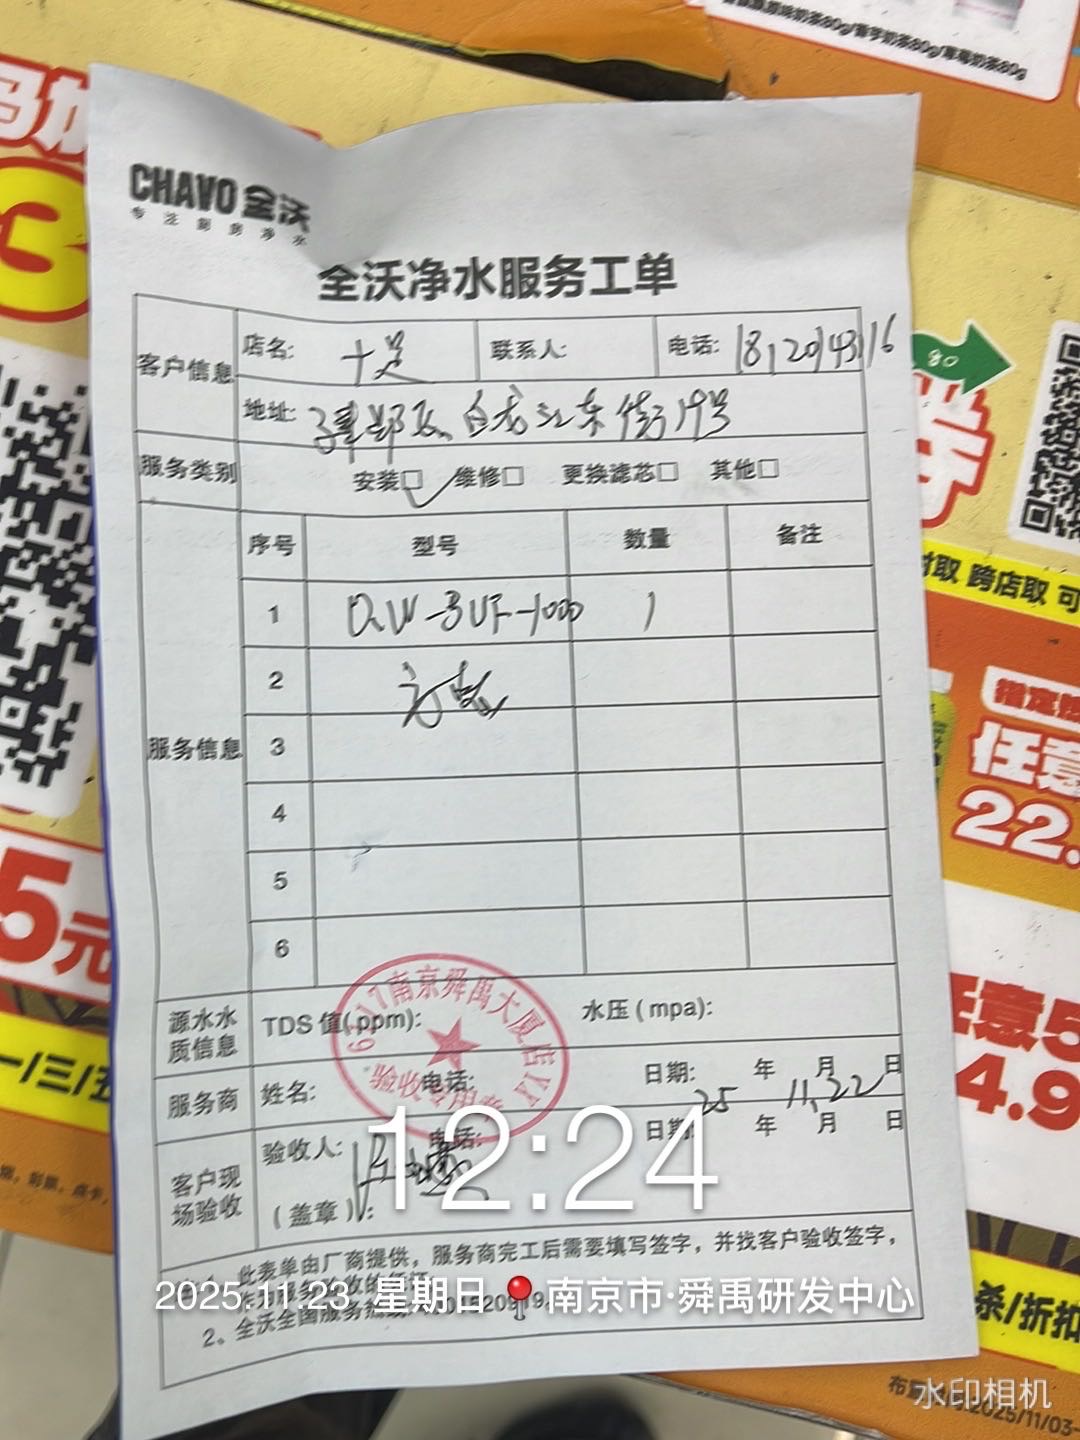 CHAVO 全沃
专注厨房净水
全沃净水服务工单
客户信息
店名: 十足
联系人:
电话: 18120143116
地址: 建邺区白龙江东街19号
服务类别
安装□ 维修□ 更换滤芯□ 其他□
服务信息
序号 型号 数量 备注
1 QW-3UF-1000 1
2
3
4
5
6
源水水质信息
TDS 值(ppm):
水压(mpa):
南京舜禹大厦店
验收专用章
服务商
姓名:
电话:
日期: 年 月 日
25 11.22
客户现场验收
验收人:
电话:
日期: 年 月 日
(盖章):
12:24
此表单由厂商提供，服务商完工后需要填写签字，并找客户验收签字，
2025.11.23 星期日 南京市·舜禹研发中心
2、全沃全国服务热线
水印相机
2025/11/03-
5元
一/三/五
80
券
时取 跨店取 可
任意
22.
任意5
4.9
杀/折扣